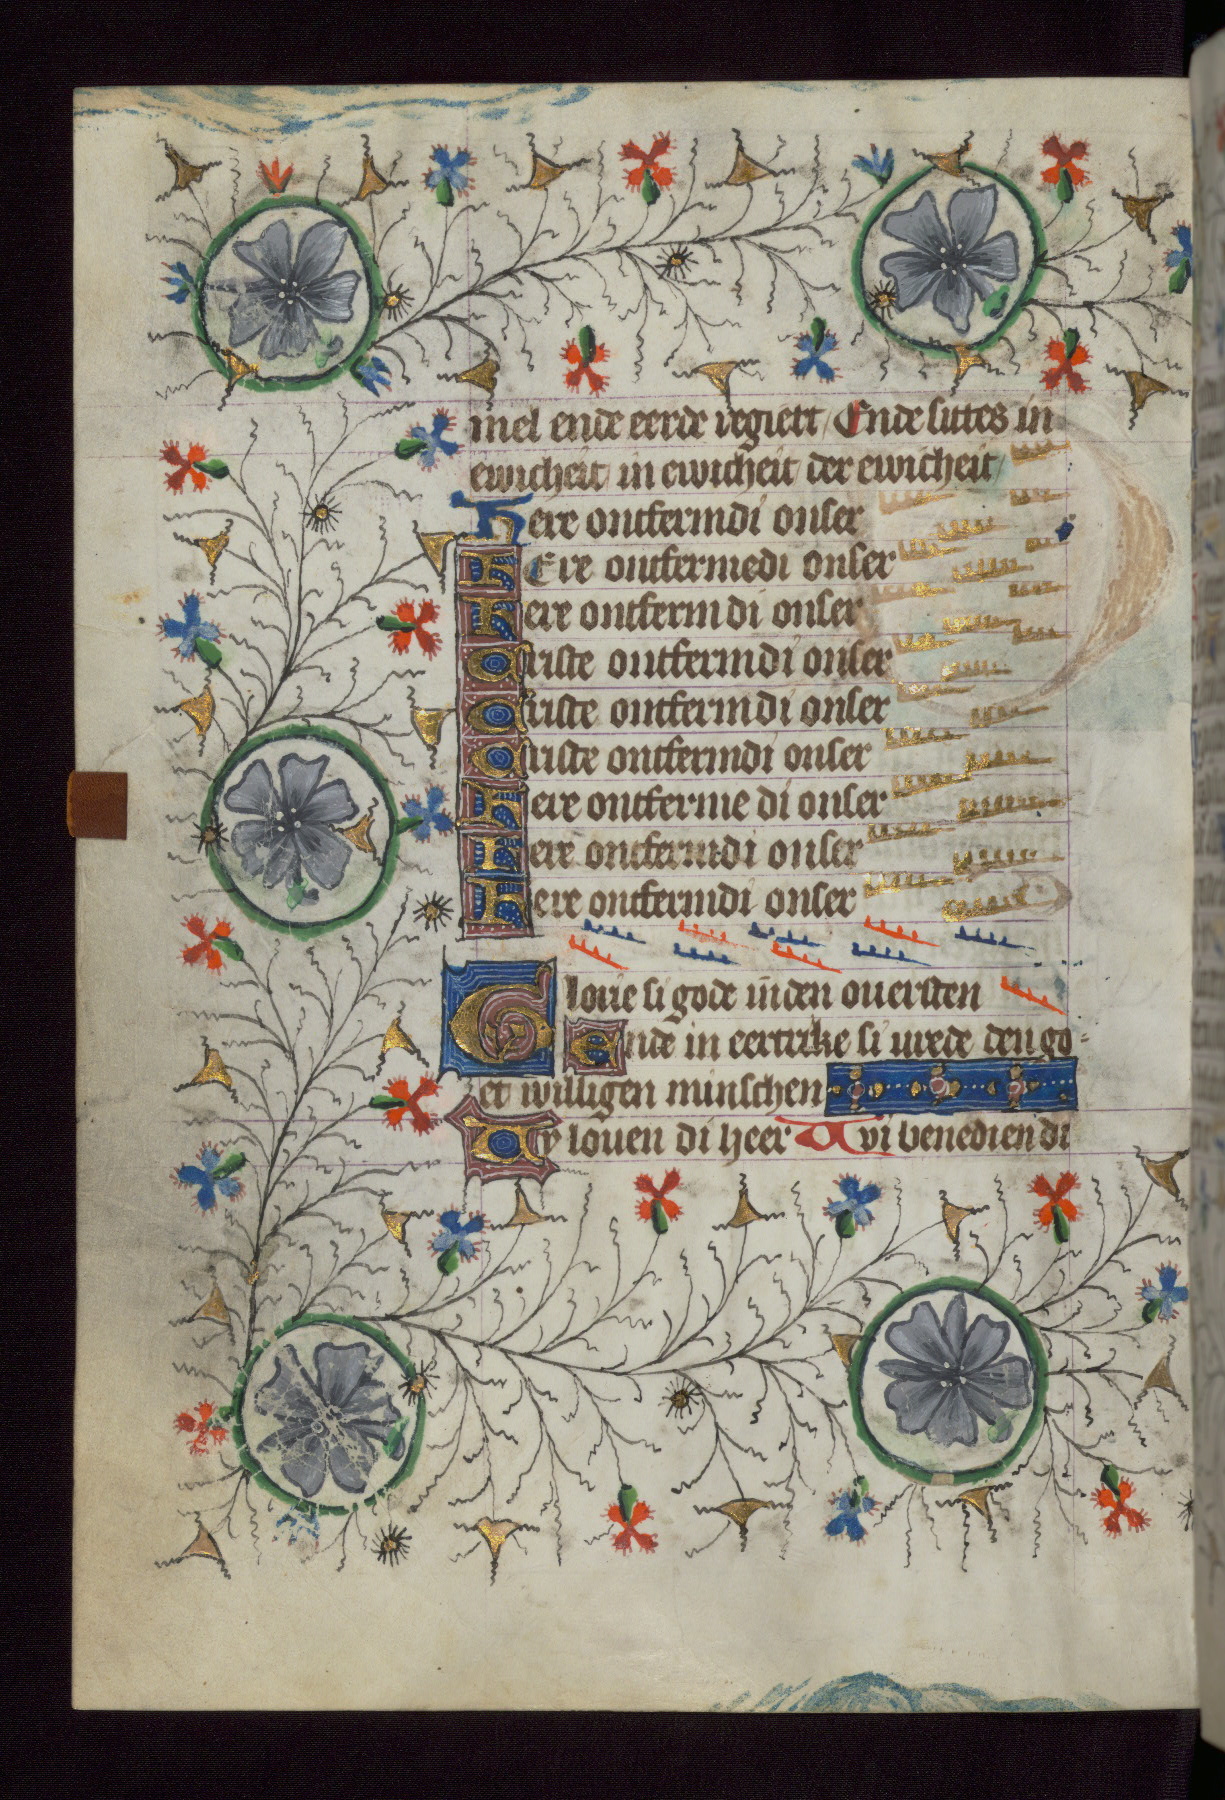 mel ende eerde regiert / Ende sittes in
ewicheit in ewicheit der ewicheit /
Here ontfermdi onser
HEre ontfermedi onser
Here ontfermdi onser
Criste ontfermdi onser
Criste ontfermdi onser
Criste ontfermdi onser
Here ontferme di onser
Here ontfermdi onser
Here ontfermdi onser
Glorie si gode inden ouersten
Ende in eertrike si vrede den go-
et willigen minschen
Wy louen di heer Wi benedien di